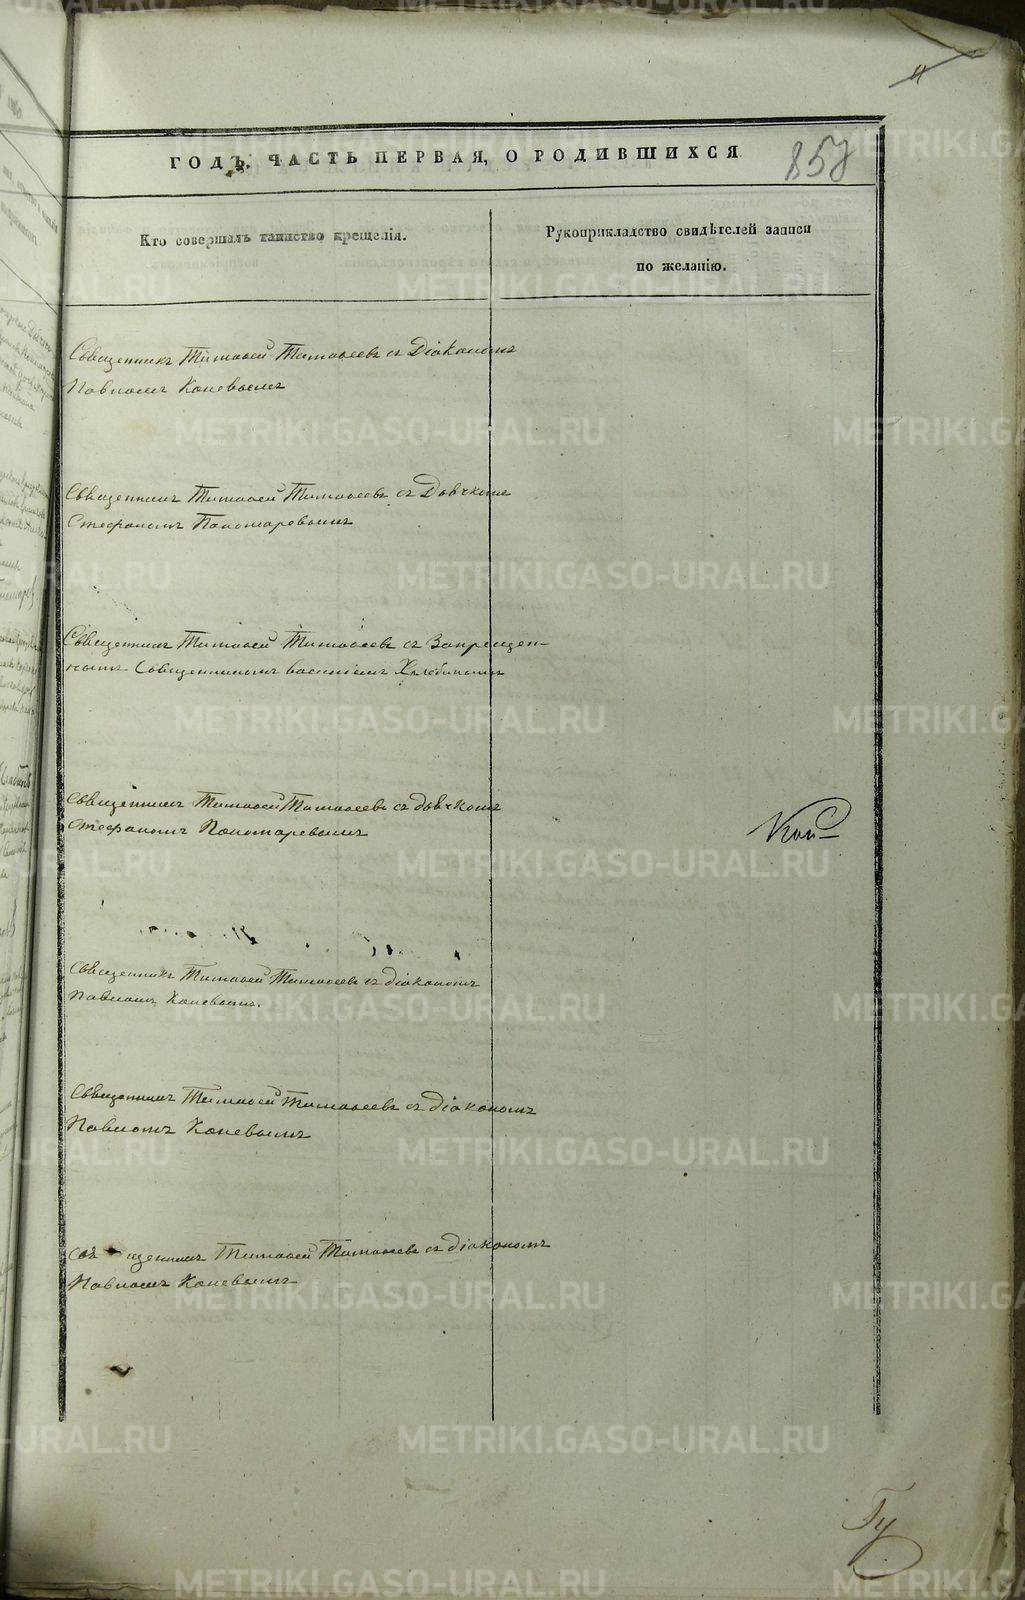 ГОДЪ. ЧАСТЬ ПЕРВАЯ, О РОДИВШИХСЯ
857
Кто совершалъ таинство крещенія.
Рукоприкладство свидѣтелей записи
по желанію.
Священникъ Тимофей Тимофеевъ съ Діакономъ
Павломъ Коневымъ
Священникъ Тимофей Тимофеевъ съ Дьячкомъ
Стефаномъ Пономаревымъ
Священникъ Тимофей Тимофеевъ съ Запрещен-
нымъ Священникомъ Василіемъ Хлѣбинымъ
Священникъ Тимофей Тимофеевъ съ Дьячкомъ
Стефаномъ Пономаревымъ
Кон
Священникъ Тимофей Тимофеевъ съ Діакономъ
Павломъ Коневымъ.
Священникъ Тимофей Тимофеевъ съ Діакономъ
Павломъ Коневымъ
Священникъ Тимофей Тимофеевъ съ Діакономъ
Павломъ Коневымъ
Гу
METRIKI.GASO-URAL.RU